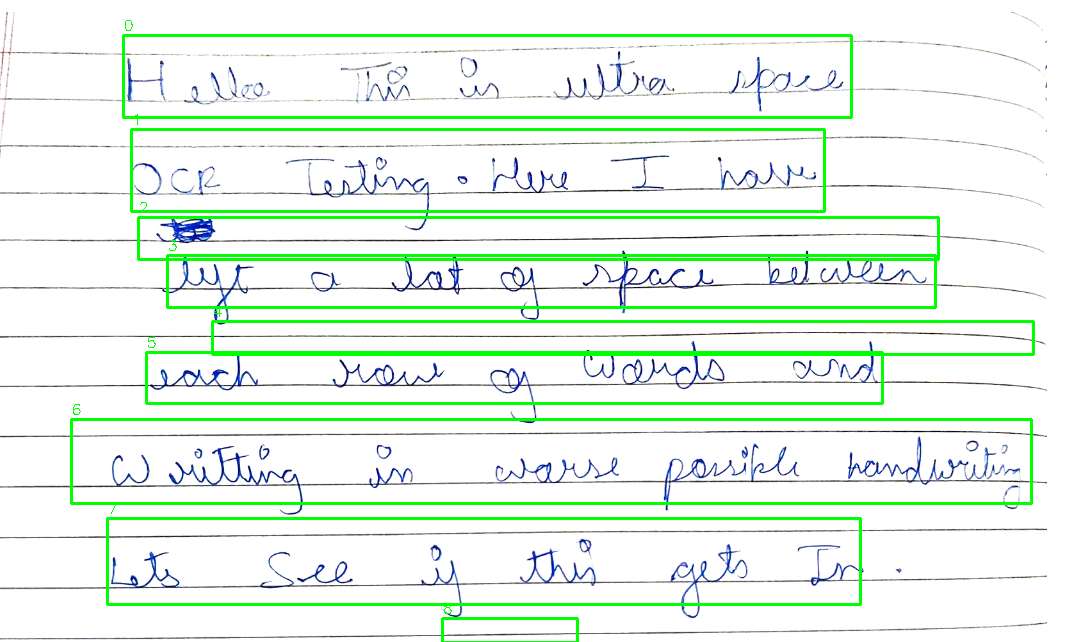 0
Hello This is ultra space
1
OCR Testing. Here I have
2
3
left a lot of space between
4
5
each row of words and
6
Writting in worse possible handwriting
7
Lets See if this gets In.
8